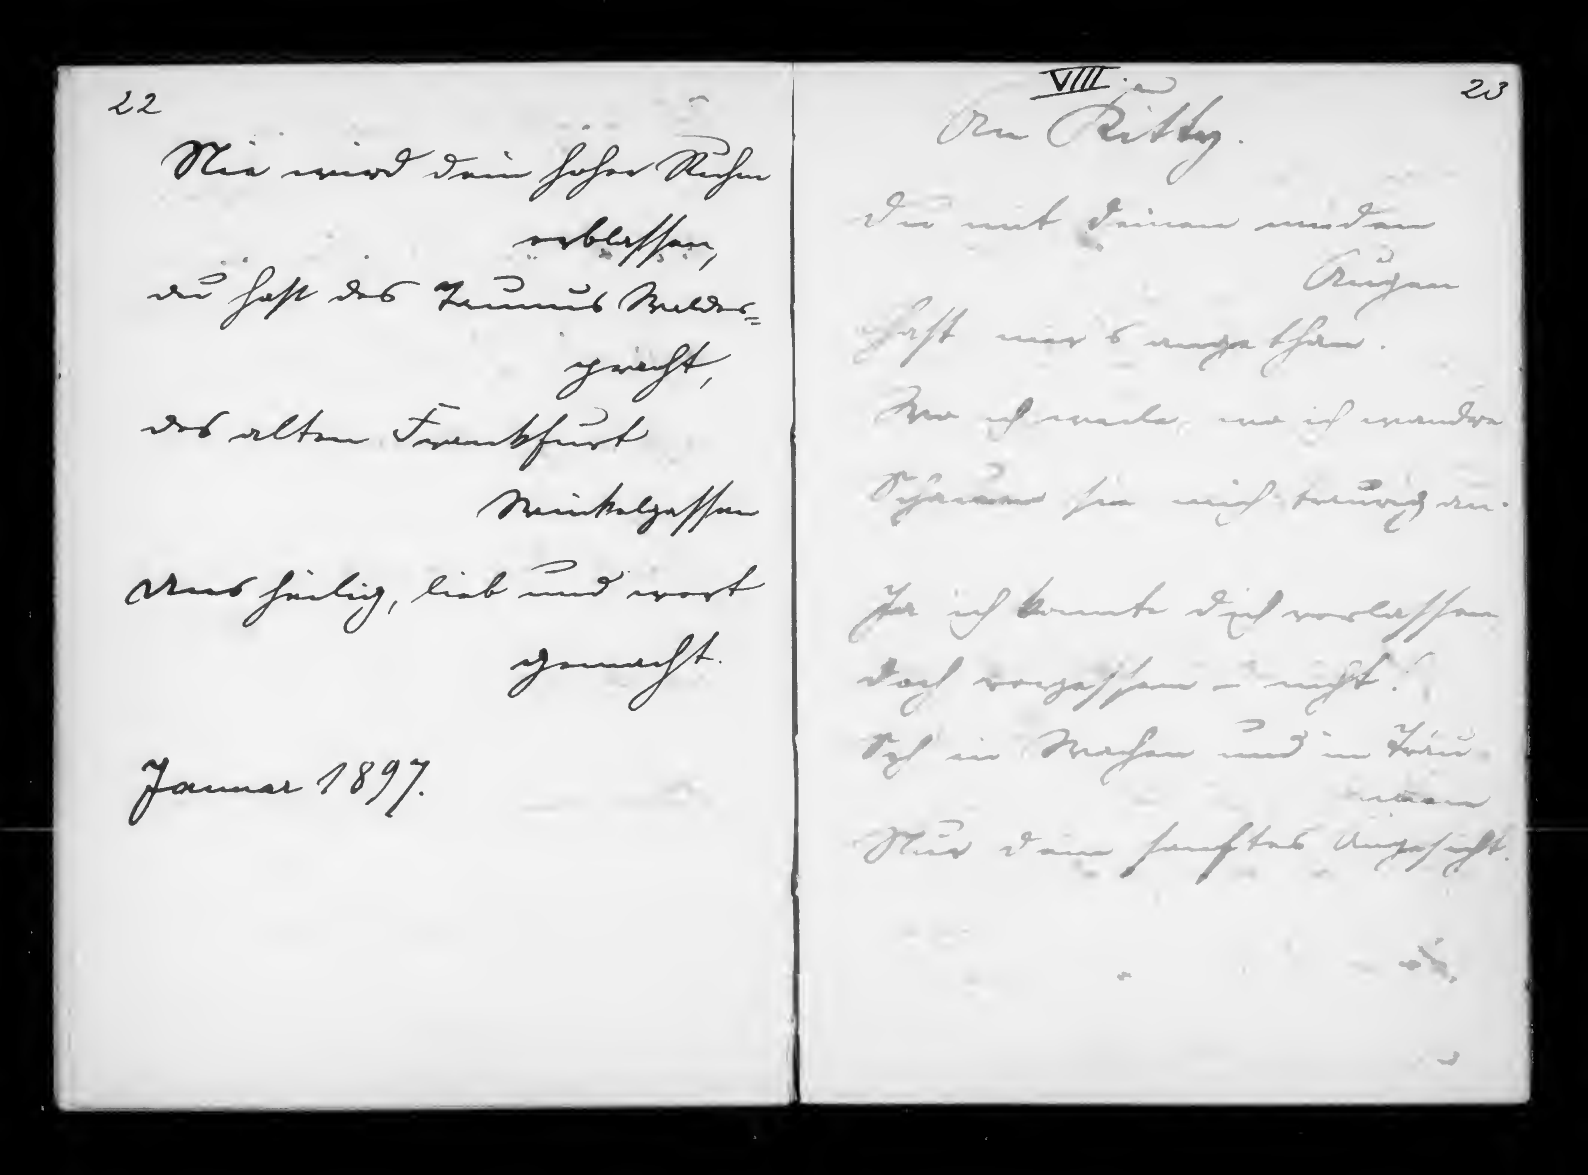 22
Nie wird dein hoher Ruhm
erblassen,
du hast des Taunus Waldes=
pracht,
des alten Frankfurt
Winkelgassen
Uns heilig, lieb und wert
gemacht.
Januar 1897.
VIII.
23
An Kitty.
Du mit deinen müden
Augen
hast mir's angethan.
Wo ich weile, wo ich wandre
Schauen sie mich traurig an.
Ja ich konnte dich verlassen
doch vergessen - nicht!
Seh im Wachen und im Träu
men
Nur dein sanftes Angesicht.